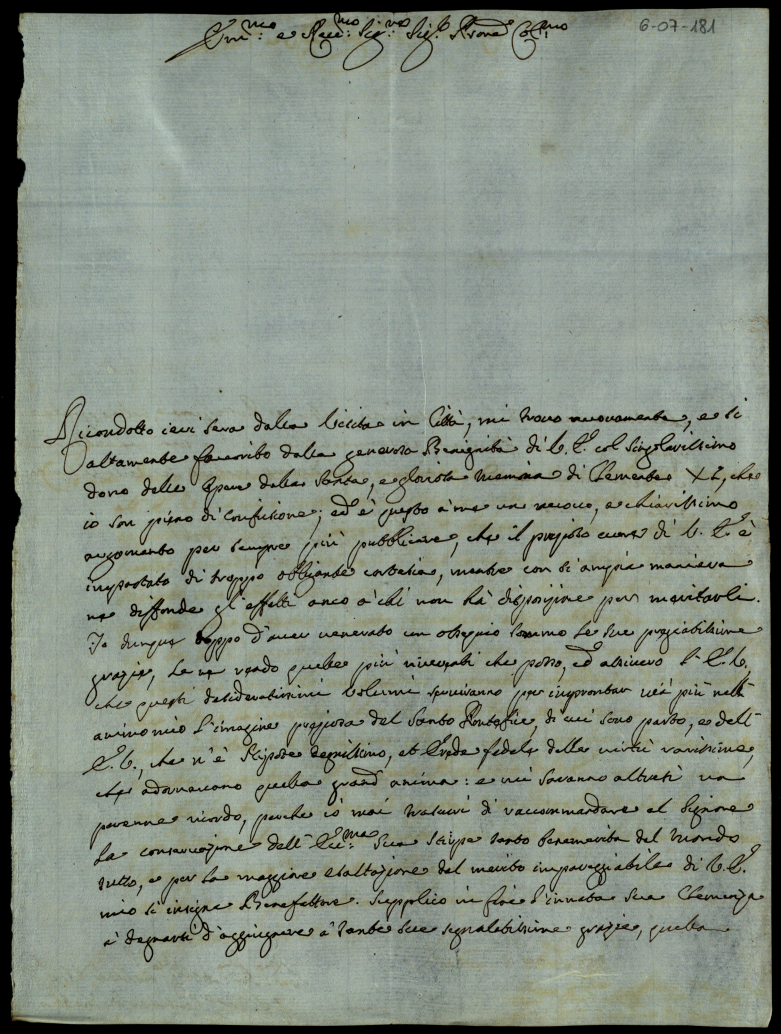 Em.mo e Rev.mo Sig.re Sig.r Prone Col.mo
6-07-181
Ricondotto ieri sera dalla Visita in Città, mi trovo nuovamente, e sì
altamente favorito dalla generosa Benignità di V. E. col singolarissimo
dono delle Opere della Santa, e gloriosa memoria di Clemente XI, che
io son pieno di confusione; ed è questo à me un nuovo, e chiarissimo
argomento per sempre più pubblicare, che il prezioso cuore di V. E. è
impastato di troppo obligante cortesia, mentre con sì ampia maniera
ne diffonde gl'effetti anco à chi non hà disposizione per meritarli.
Io dunque doppo d'aver venerato con ossequio sommo le sue pregiabilissime
grazie, le ne rendo quelle più riverenti che posso, ed assicuro l'E. V.
che questi desideratissimi Volumi serviranno per improntar vie più nell'
animo mio l'imagine preziosa del Santo Pontefice, di cui sono parto, e dell'
E. V., che n'è Nipote degnissimo, et Erede fedele delle virtù rarissime,
che adornarono quella grand'anima: e mi saranno altresì un
perenne ricordo, perche io mai trascuri di raccommandare al Signore
la conservazione dell'Ecc.ma Sua Stirpe tanto benemerita del Mondo
tutto, e per la maggiore esaltazione del merito impareggiabile di V. E.
mio sì insigne Benefattore. Supplico in fine l'innata Sua Clemenza
à degnarsi d'aggiugnere à tante sue segnalatissime grazie, quella